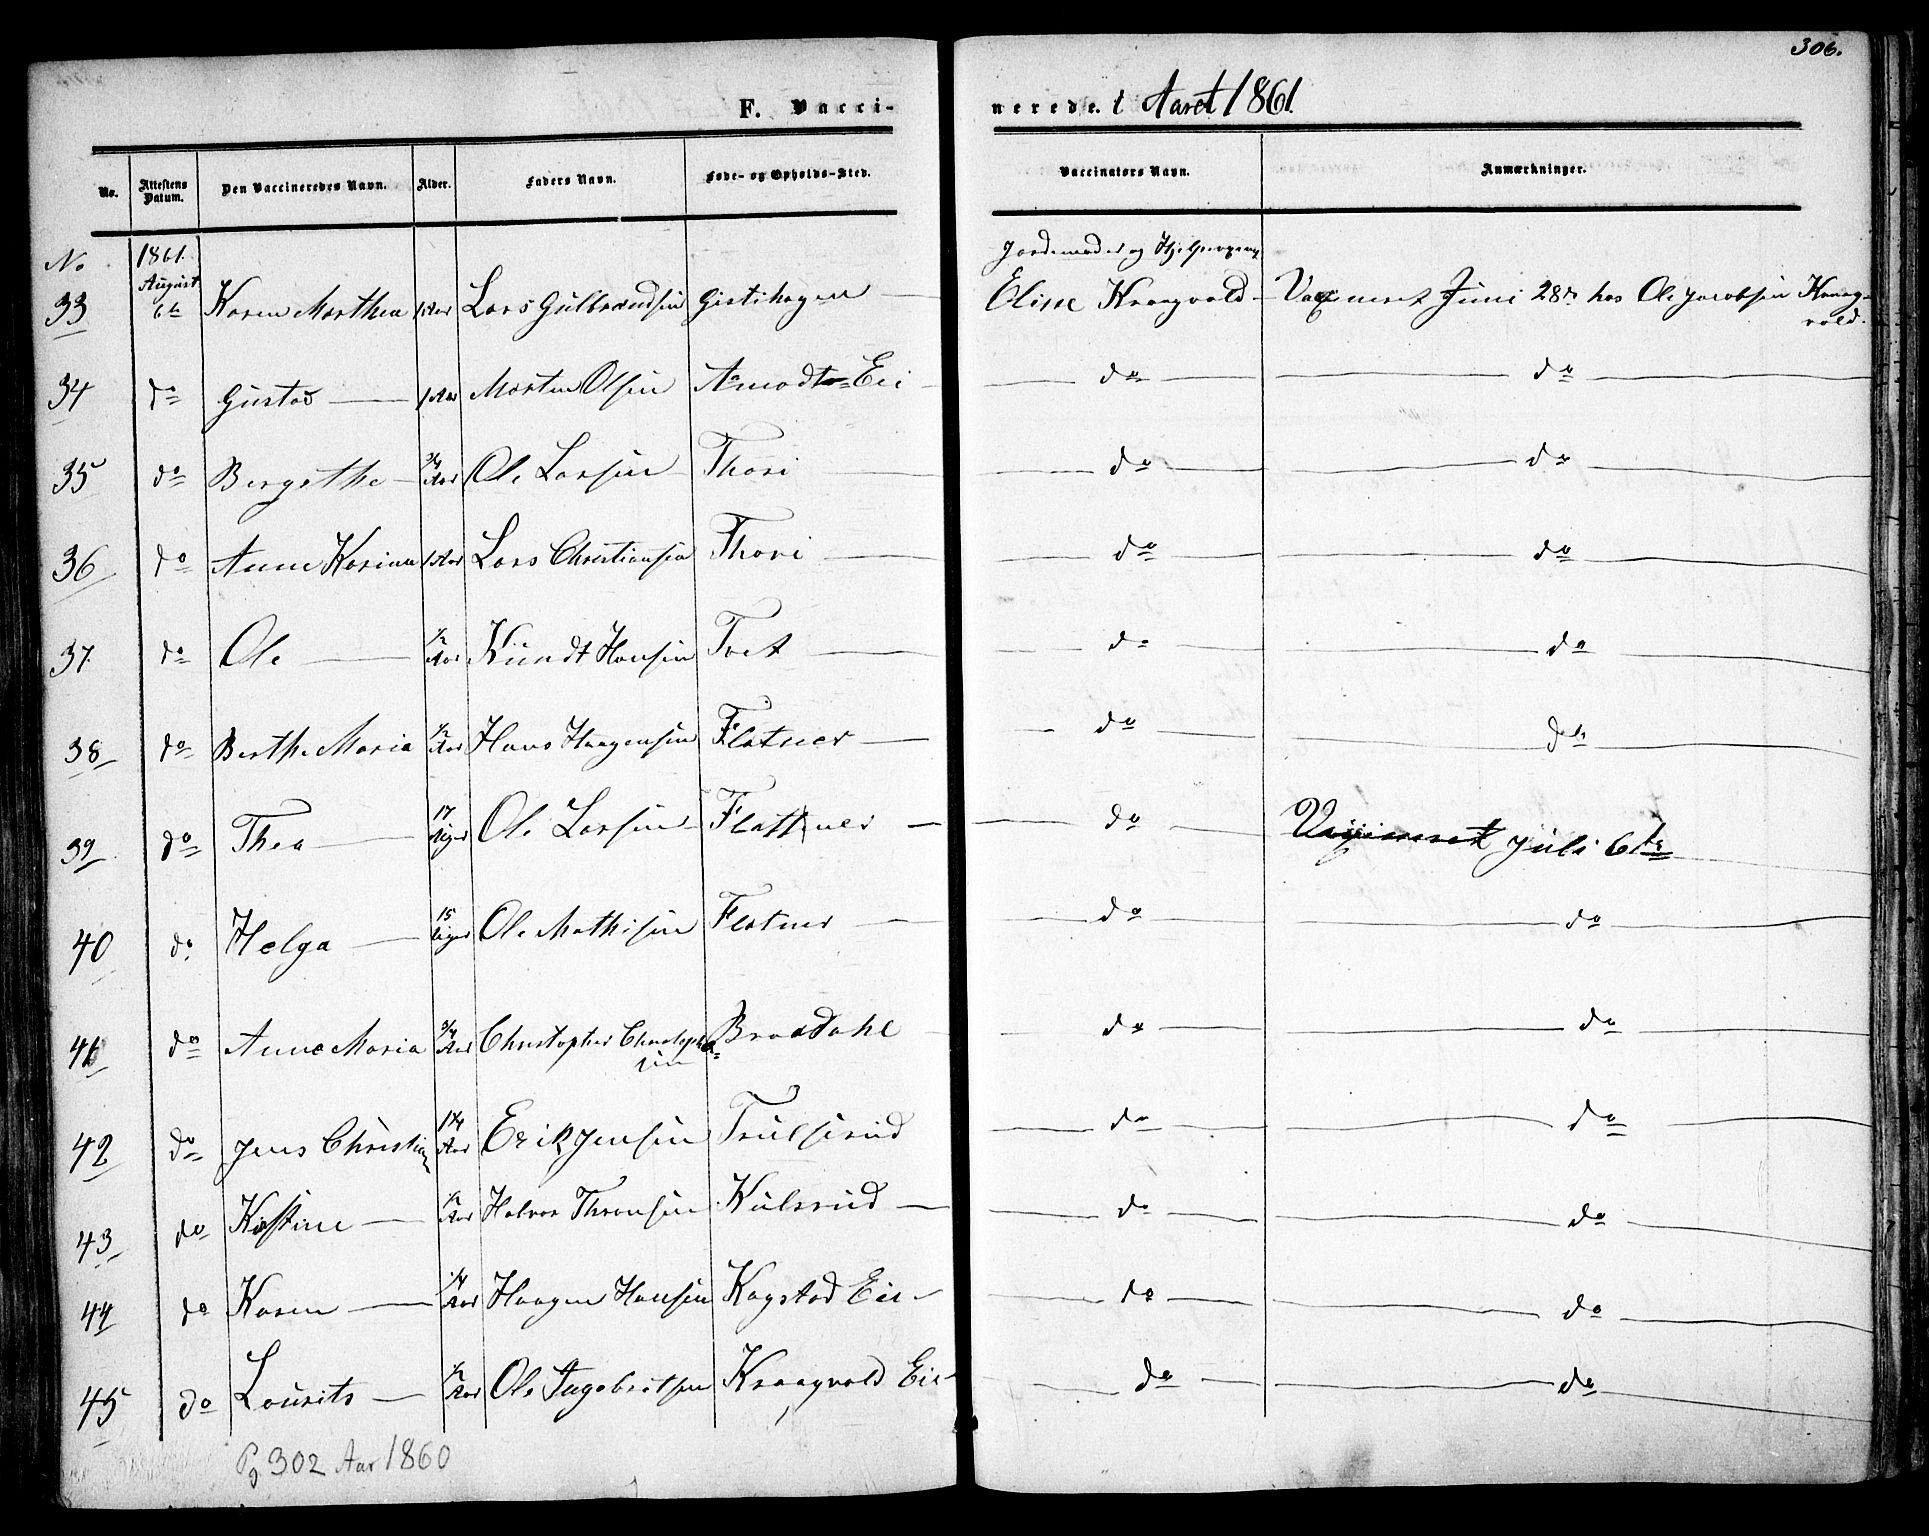 306.
F. Vaccinerede. i Aaret 1861.
No. Attestens Datum. Den Vaccineredes Navn. Alder. Faders Navn. Føde- og Opholds-Sted. Vaccinators Navn. Anmærkninger.
No 1861. Jordemoder og
33 August 6te Karen Marthea 1 Aar Lars Gulbrandsen Gistihagen — Eline Kraagvold — Juni 28de hos Ole Jacobsen Kraag-
vold.
34 do Gustav — 1 Aar Morten Olsen Aamodt Eie — do — do
35 do Bergethe — 3/4 Aar Ole Larsen Thori — do — do
36 do Anne Karine 1 Aar Lars Christiansen Thori — do — do
37. do Ole — 1/2 Aar Knudt Hansen Tvet — do — do
38 do Berthe Maria 1/2 Aar Hans Haagensen Flatner — do — do
39 do Thea — 17 Uger Ole Larsen Flattner — do — Juli 6te
40 do Helga — 15 Uger Ole Mathisen Flatner — do — do
41 do Anne Maria 3/4 Aar Christopher Christoph-
sen Braadahl — do — do
42 do Jens Christian 1 1/4 Aar Erik Jensen Trulserud — do — do
43 do Kirstine — 1/2 Aar Halvor Thronsen Kulsrud — do — do
44 do Karen — 1/4 Aar Haagen Hansen Kogstad Eie — do — do
45 do Lourits — 1/2 Aar Ole Ingebretsen Kraagvold Eie — do — do
Pg 302 Aar 1860